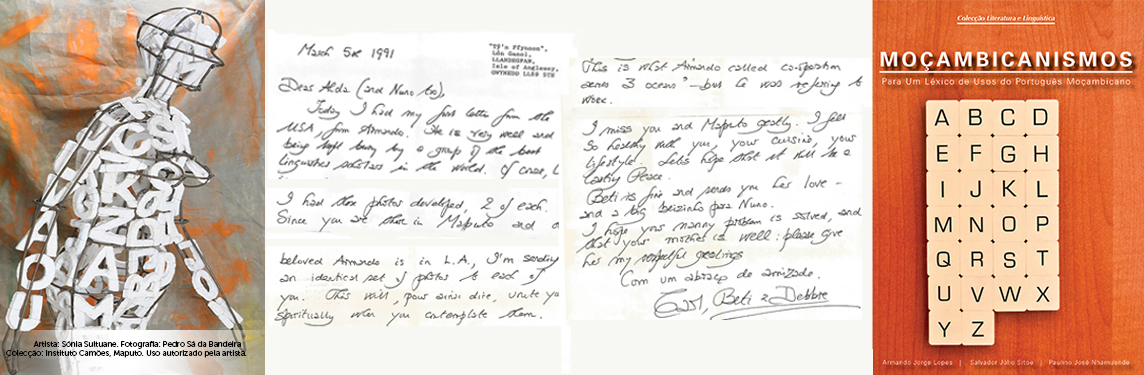 Artista: Sónia Sultuane. Fotografia: Pedro Sá da Bandeira
Colecção: Instituto Camões, Maputo. Uso autorizado pela artista.
March 5th 1991
"Tŷ'n Ffynnon",
Lôn Ganol,
LLANDEGFAN,
Isle of Anglesey,
GWYNEDD LL59 5TH
Dear Alda (and Nuno too),
Today I had my first letter from the
USA, from Armando. He is very well and
being kept busy by a group of the best
linguistics scholars in the world. Of course, I
I had the photos developed, 2 of each.
Since you are there in Maputo and
beloved Armando is in L.A., I'm sending
an identical set of photos to each of
you. This will, pour ainsi dire, unite you
spiritually when you contemplate them.
This is what Armando called co-operation
across 3 oceans - but he was referring to
work.
I miss you and Maputo greatly. I felt
so healthy with you, your cuisine, your
lifestyle. Let's hope that it will be a
lasting Peace.
Beti is fine and sends you her love -
and a big beijinho para Nuno.
I hope your nanny problem is solved, and
that your mother is well: please give
her my respectful greetings
Com um abraço de amizade.
Beti e Debbie
Colecção Literatura e Linguística
MOÇAMBICANISMOS
Para Um Léxico de Usos do Português Moçambicano
A B C D
E F G H
I J K L
M N O P
Q R S T
U V W X
Y Z
Armando Jorge Lopes | Salvador Júlio Sitoe | Paulino José Nhamuende